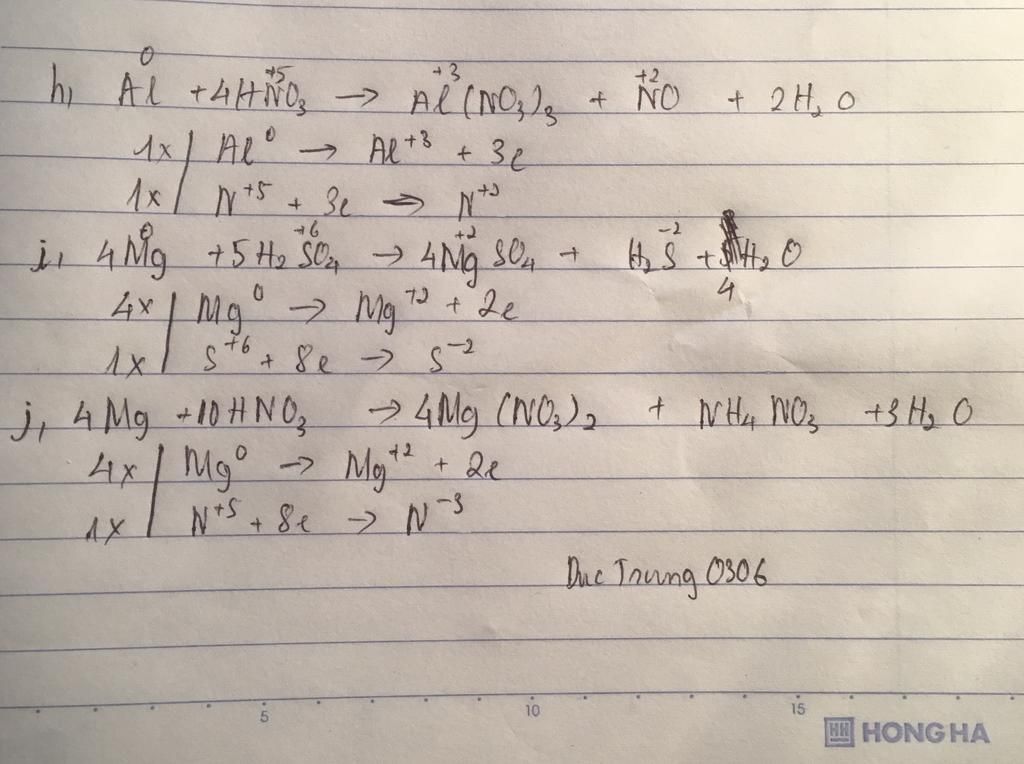 h, Al⁰ + 4HN⁺⁵O₃ → Al⁺³(NO₃)₃ + N⁺²O + 2H₂O
1x | Al⁰ → Al⁺³ + 3e
1x | N⁺⁵ + 3e → N⁺²
i, 4Mg⁰ + 5H₂S⁺⁶O₄ → 4Mg⁺²SO₄ + H₂S⁻² + 4H₂O
4x | Mg⁰ → Mg⁺² + 2e
1x | S⁺⁶ + 8e → S⁻²
j, 4Mg + 10HNO₃ → 4Mg(NO₃)₂ + NH₄NO₃ + 3H₂O
4x | Mg⁰ → Mg⁺² + 2e
1x | N⁺⁵ + 8e → N⁻³
Duc Trung 0306
5 10 15
HH HONG HA